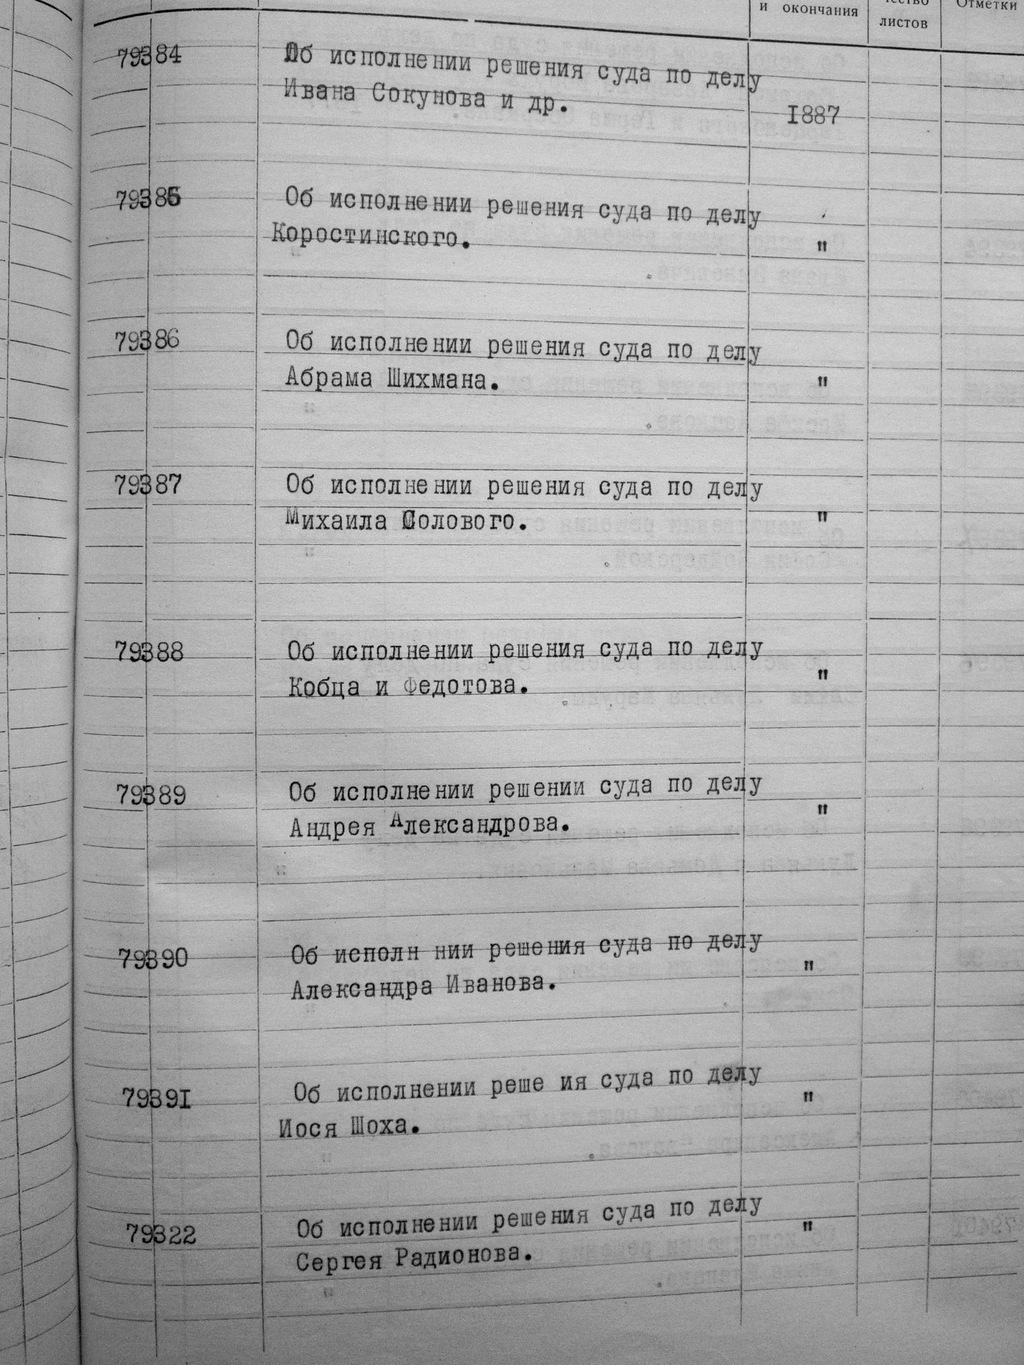 и окончания
листов
Отметки
79384 Об исполнении решения суда по делу
Ивана Сокунова и др. 1887
79385 Об исполнении решения суда по делу
Коростинского. "
79386 Об исполнении решения суда по делу
Абрама Шихмана. "
79387 Об исполнении решения суда по делу
Михаила Солового. "
79388 Об исполнении решения суда по делу
Кобца и Федотова. "
79389 Об исполнении решении суда по делу
Андрея Александрова. "
79390 Об исполн нии решения суда по делу
Александра Иванова. "
79391 Об исполнении реше ия суда по делу
Иося Шоха. "
79322 Об исполнении решения суда по делу
Сергея Радионова. "